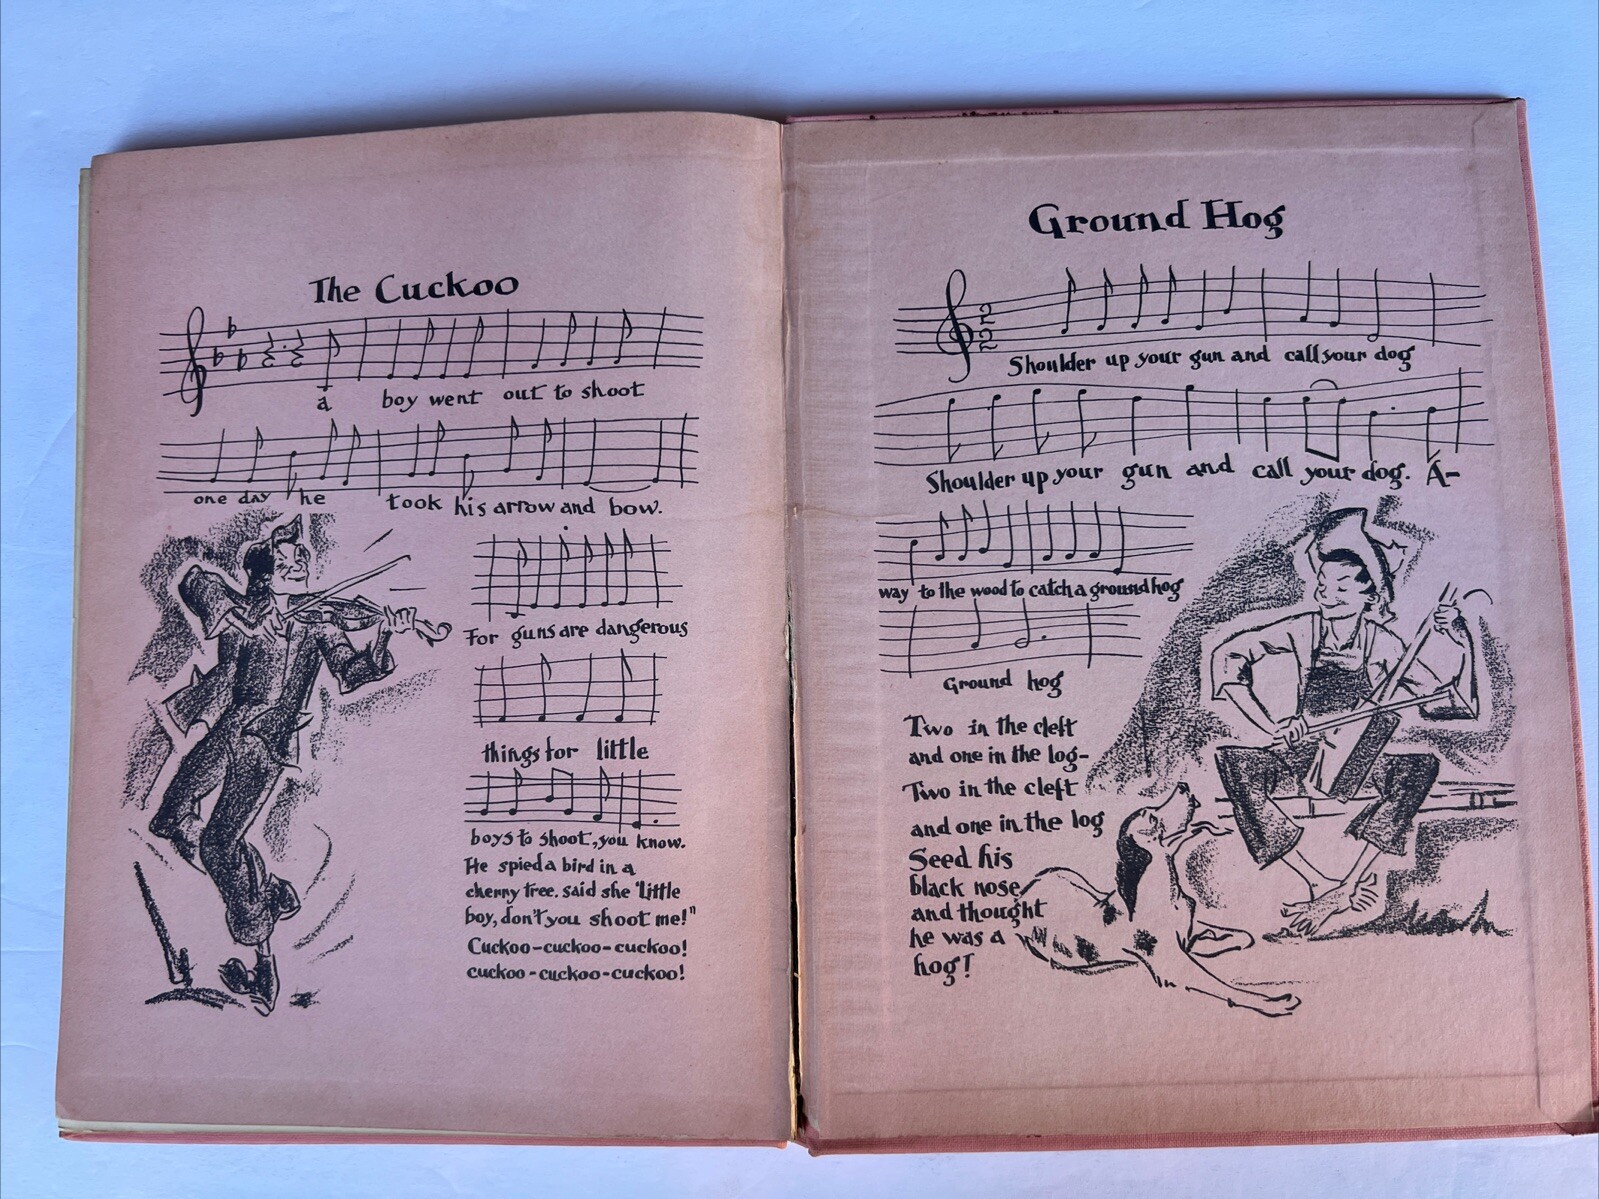 The Cuckoo
a boy went out to shoot
one day he took his arrow and bow.
For guns are dangerous
things for little
boys to shoot, you know.
He spied a bird in a
cherry tree. said she "Little
boy, don't you shoot me!"
Cuckoo-cuckoo-cuckoo!
cuckoo-cuckoo-cuckoo!
Ground Hog
Shoulder up your gun and call your dog
Shoulder up your gun and call your dog. A-
way to the wood to catch a ground hog
Ground hog
Two in the cleft
and one in the log-
Two in the cleft
and one in the log
Seed his
black nose
and thought
he was a
hog!